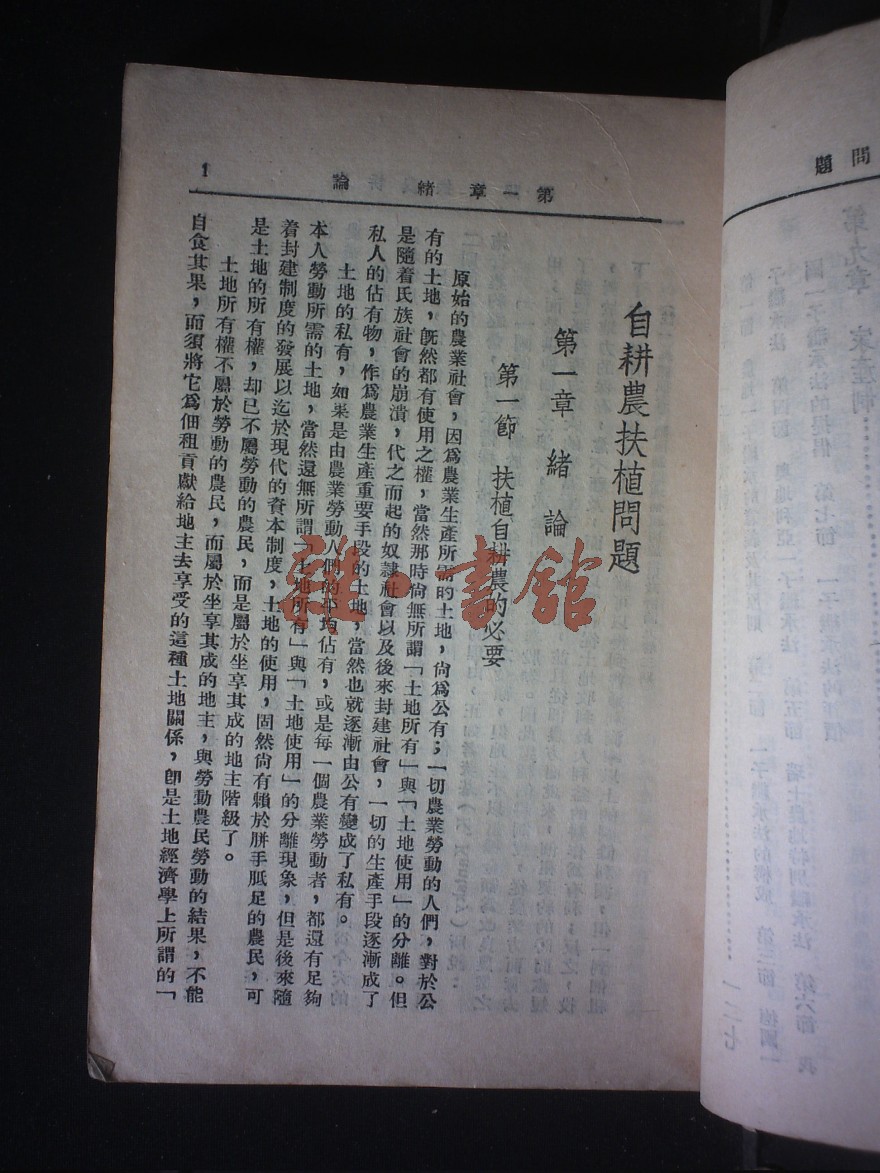 第一章 緒論
1
自耕農扶植問題
第一章 緒論
第一節 扶植自耕農的必要
原始的農業社會，因爲農業生產所需的土地，尙爲公有；一切農業勞動的人們，對於公
有的土地，旣然都有使用之權，當然那時尙無所謂「土地所有」與「土地使用」的分離。但
是隨着民族社會的崩潰，代之而起的奴隸社會以及後來封建社會，一切的生產手段逐漸成了
私人的佔有物，作爲農業生產重要手段的土地，當然也就逐漸由公有變成了私有。
土地的私有，如果是由農業勞動人們的平均佔有，或是每一個農業勞動者，都還有足夠
本人勞動所需的土地，當然還無所謂「土地所有」與「土地使用」的分離現象，但是後來隨
着封建制度的發展以迄於現代的資本制度，土地的使用，固然尙有賴於胼手胝足的農民，可
是土地的所有權，却已不屬勞動的農民，而是屬於坐享其成的地主階級了。
土地所有權不屬於勞動的農民，而屬於坐享其成的地主，與勞動農民勞動的結果，不能
自食其果，而須將它爲佃租貢獻給地主去享受的這種土地關係，卽是土地經濟學上所謂的「
雜·書館
問題
第九章 家產制
一二七